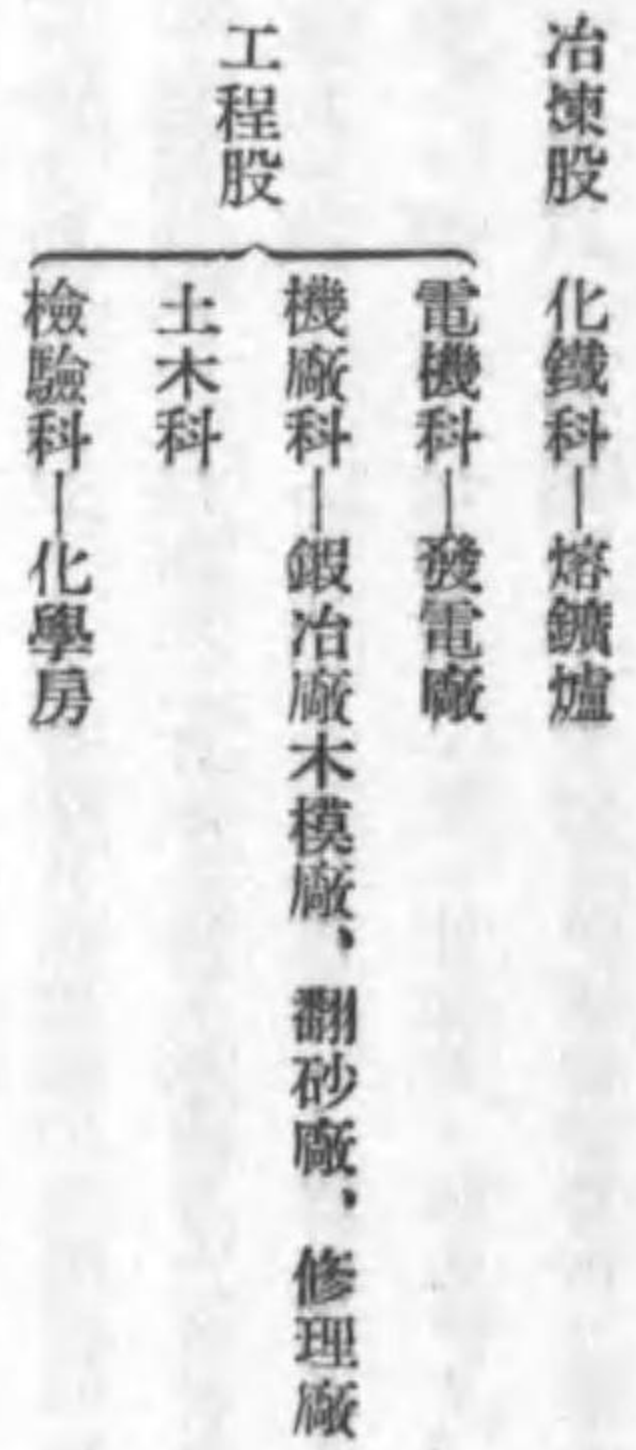 冶煉股　化鐵科—熔鑛爐
工程股
電機科—發電廠
機廠科—鍜冶廠木模廠、翻砂廠、修理廠
土木科
檢驗科—化學房